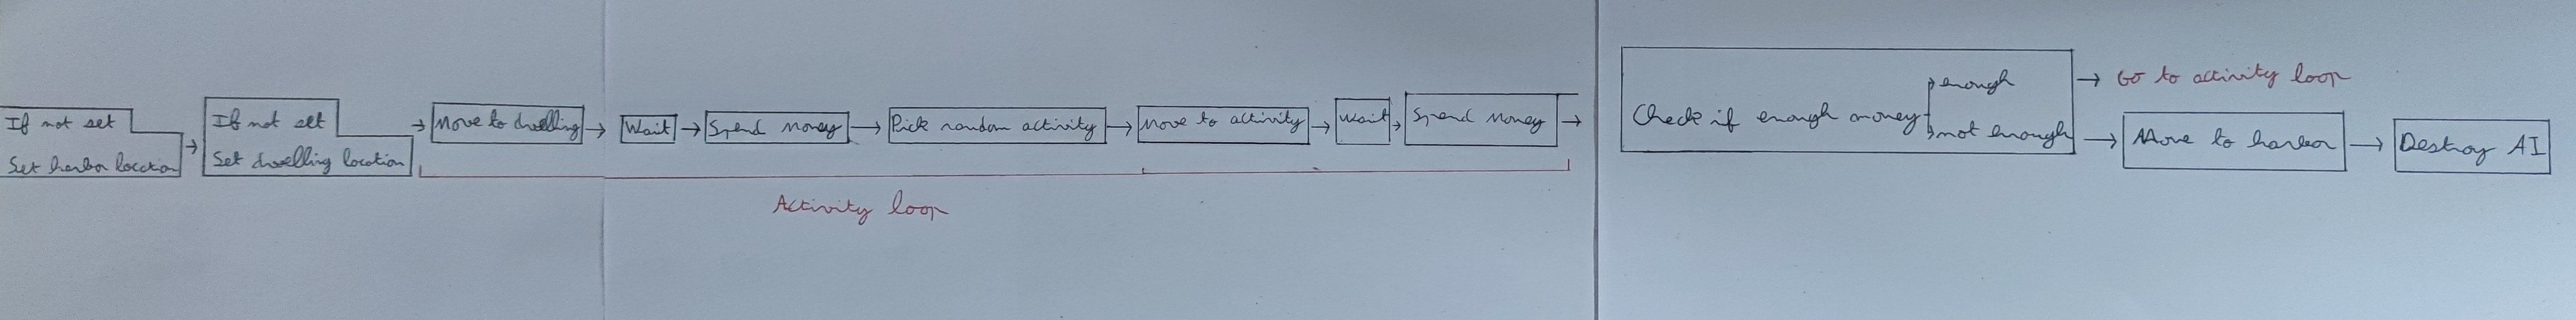 If not set
Set harbor location
If not set
Set dwelling location
Move to dwelling
Wait
Spend money
Pick random activity
Move to activity
Wait
Spend money
Activity loop
Check if enough money
enough
not enough
Go to activity loop
Move to harbor
Destroy AI